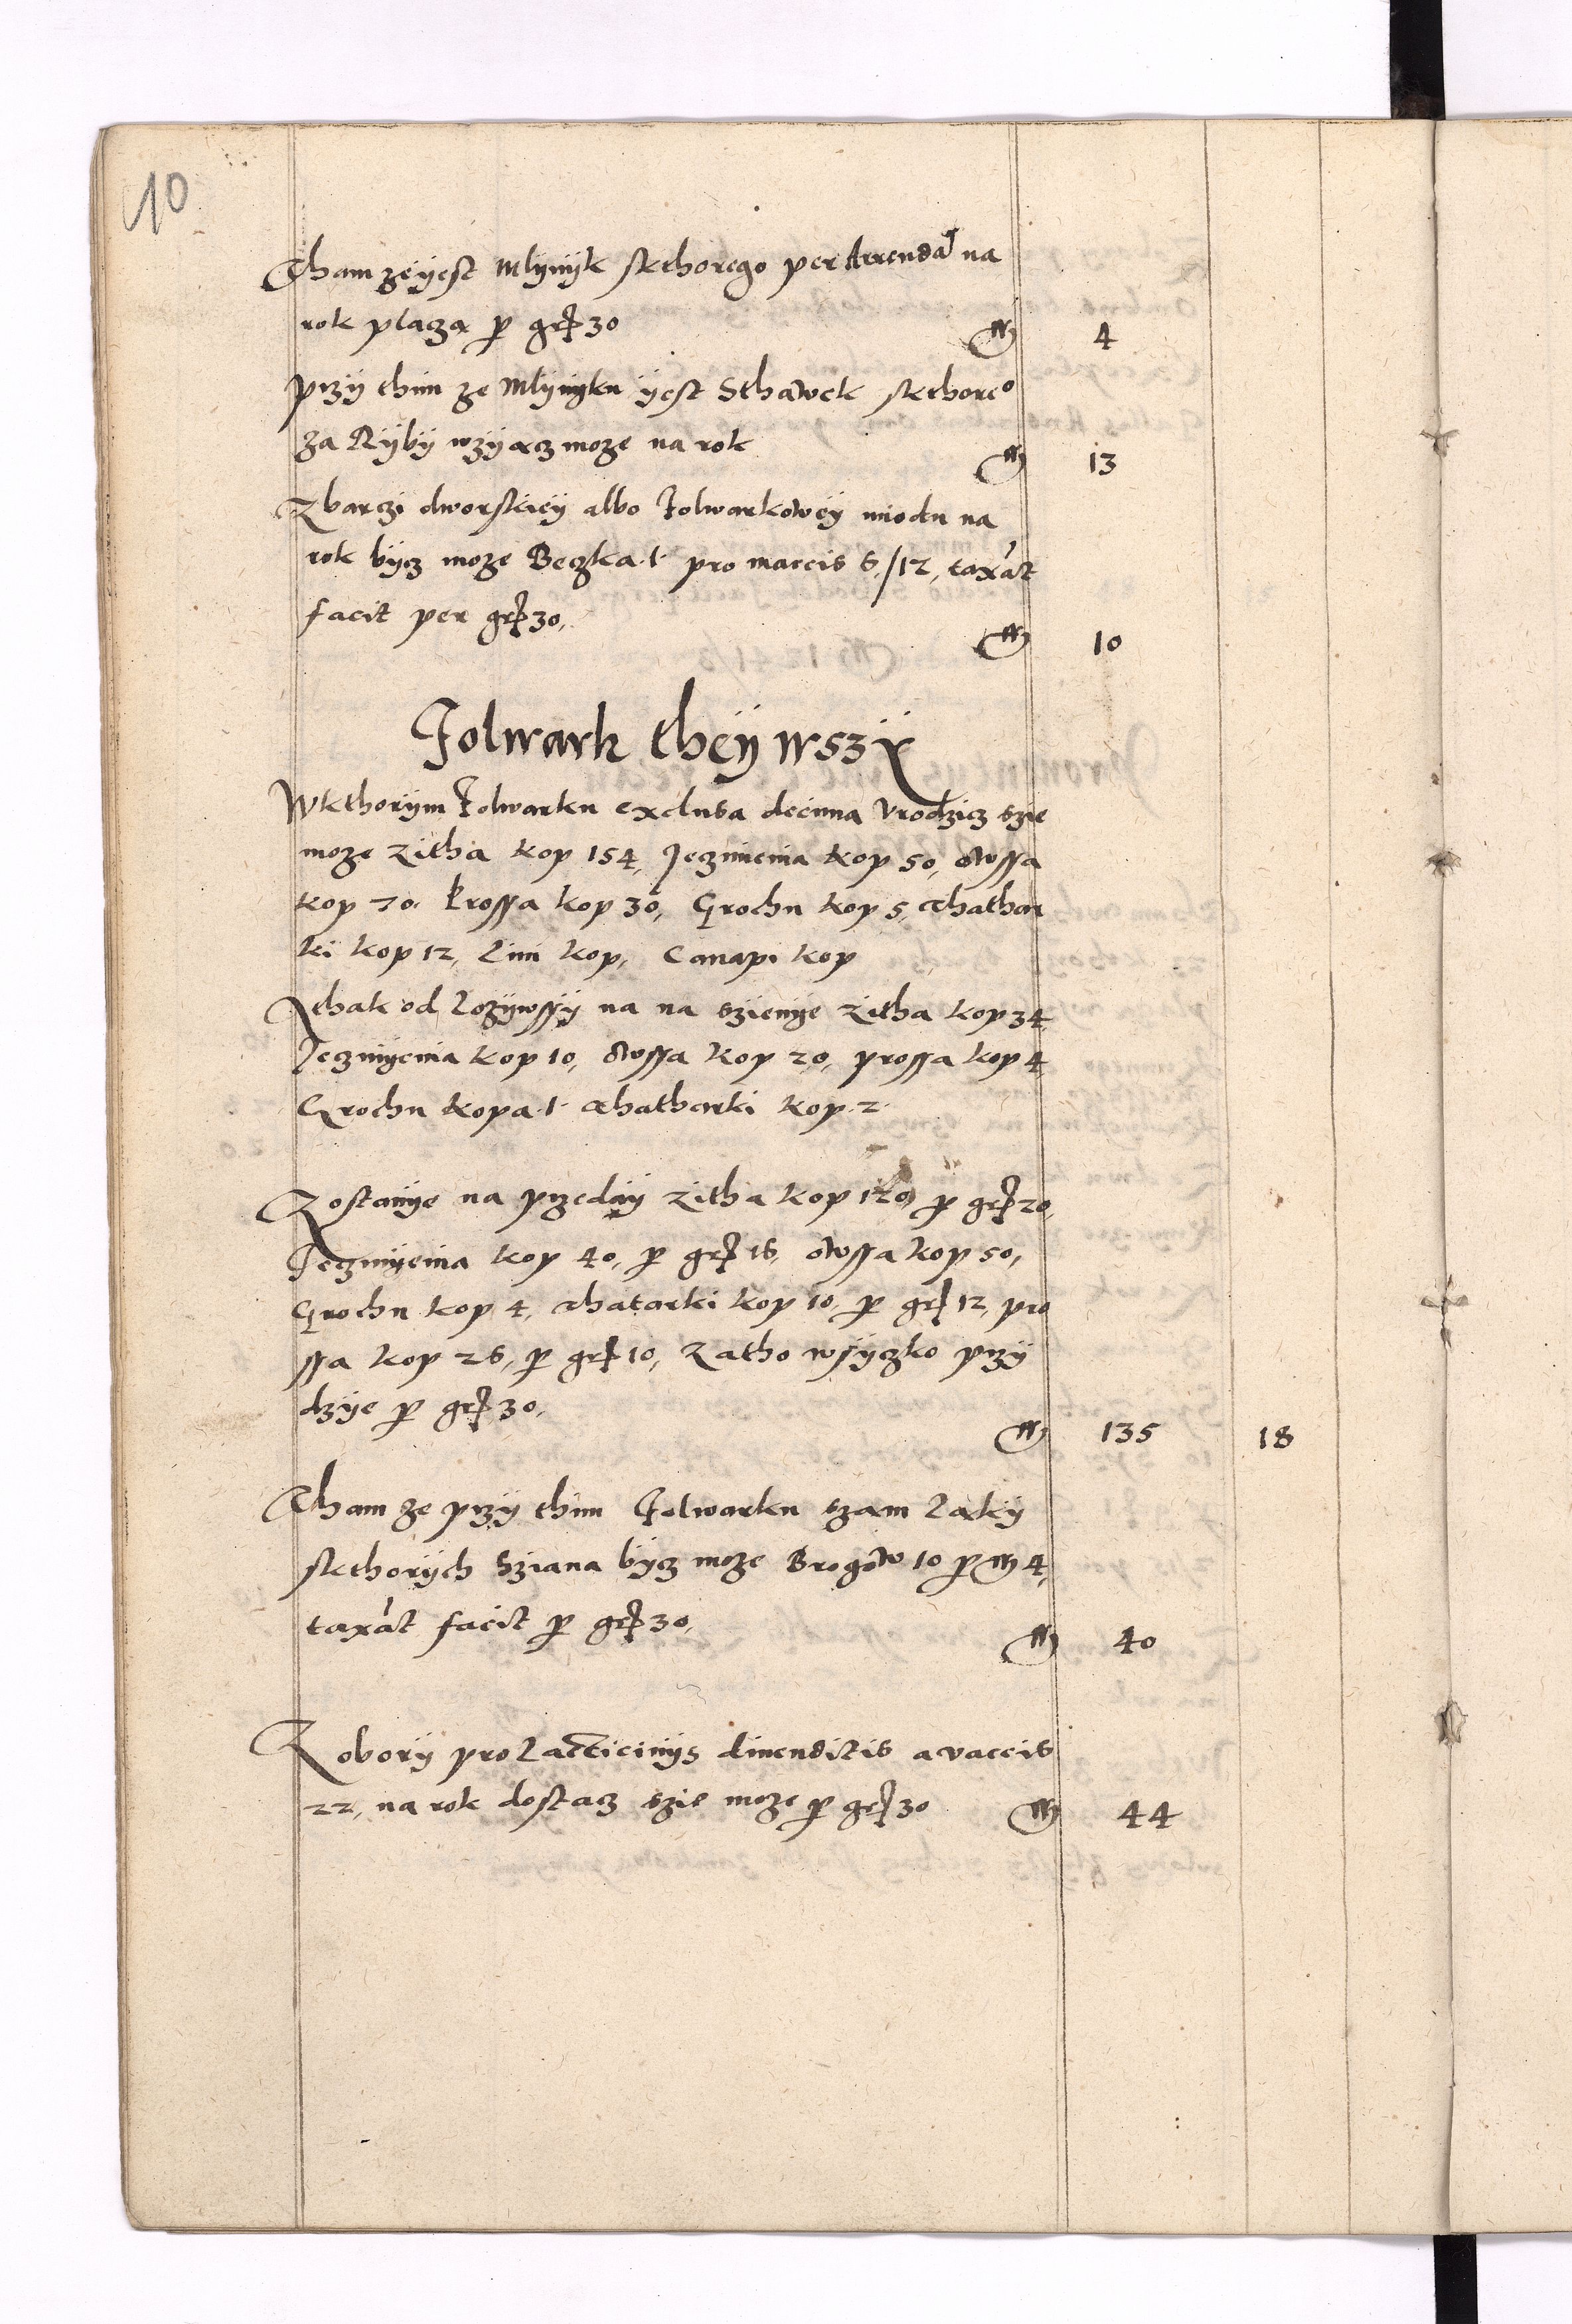 10
Tham ze yest Mlynyk skthorego per Arrendã na
rok placza p gr 30 M 4
przy thim ze Mlynyku yest Sthawek skthoreo
za Ryby wzyacz moze na rok M 13
Z barczi dworskiey albo Folwarkowey miodu na
rok bycz moze Beczka ·1· pro marcis 6 /12, taxat
facit per gr 30, M 10
Folwark they wszy
W kthorym Folwarku exclusa decima Vrodzicz szie
moze Zitha kop 154, Jeczmienia kop 50, Owssa
kop 70. Prossa kop 30, Grochu kop 5, Thathar
ki kop 12, Lini kop, Canapi kop
Ithak od Lozywssy na na szienye Zitha kop 34
Jeczmyenia kop 10, Owssa kop 20, prossa kop 4
Grochu kopa ·1· Thatharki kop ·2·
Zostanye na przeday Zitha kop 120, p gr 20,
Jeczmyenia kop 40, p gr 16, owssa kop 50,
Grochu kop 4, Thatarki kop 10, p gr 12, pro
ssa kop 26, p gr 10, Zatho wsyczko przy
dzye p gr 30, M 135 18
Tham ze przy thim Folwarku szam Laky
skthorych Sziana bycz moze Brogow 10 p M 4,
taxat facit p gr 30, M 40
Z obory pro Lacticinys divenditis a vaccis
22, na rok dostacz szie moze p gr 30 M 44